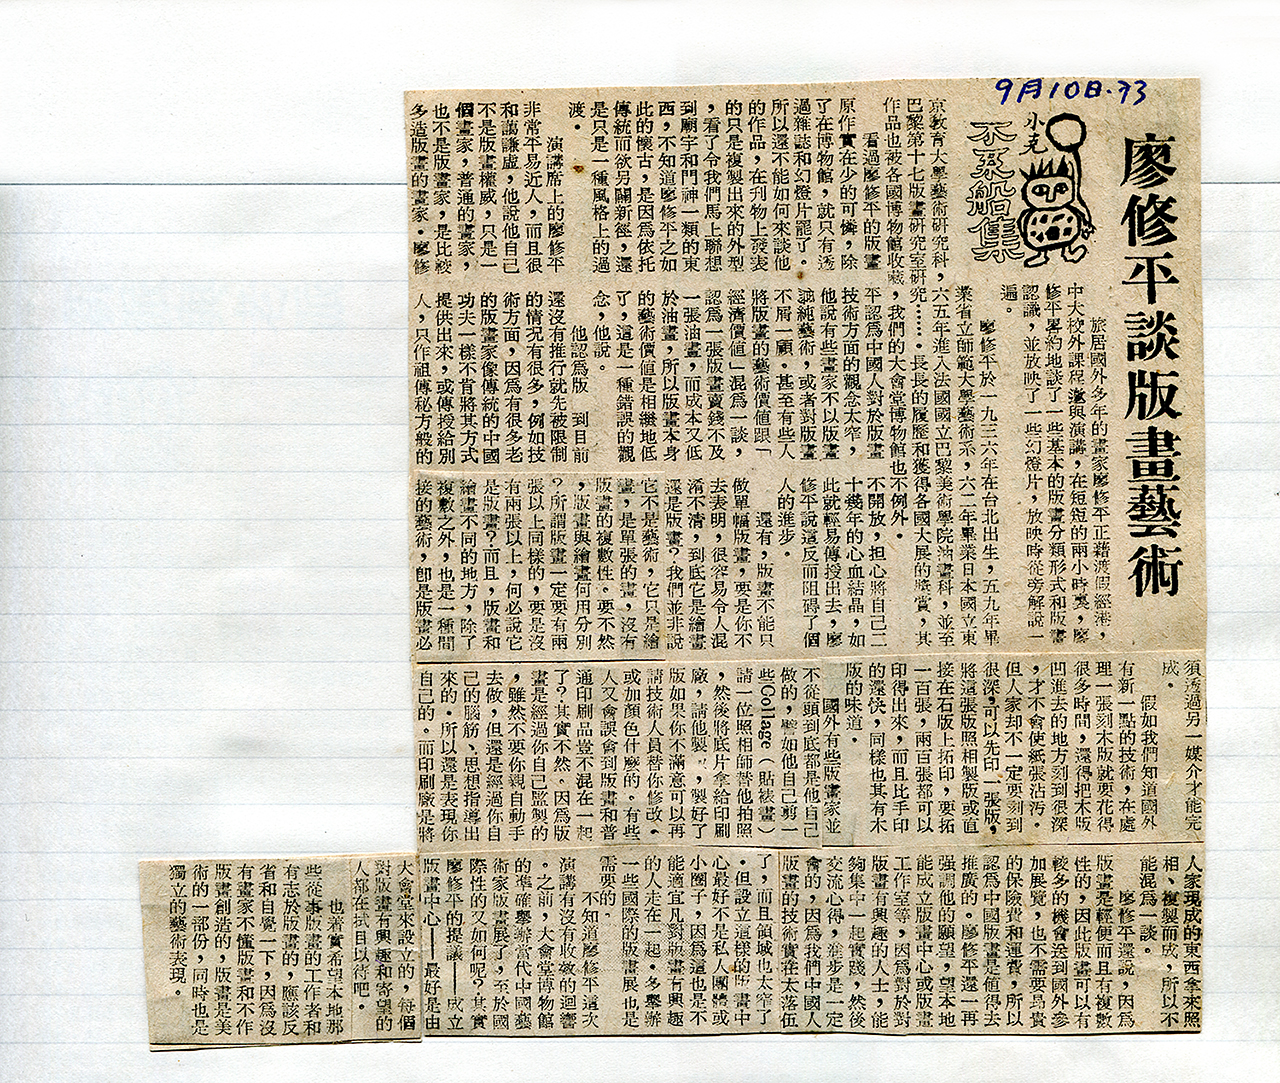 9月10日·73
廖修平談版畫藝術
小克
不系船集
旅居國外多年的畫家廖修平正藉渡假經港,
中大校外課程邀與演講,在短短的兩小時裏,廖
修平畧約地談了一些基本的版畫分類形式和版畫
認識,並放映了一些幻燈片,放映時從旁解說一
遍。
廖修平於一九三六年在台北出生,五九年畢
業省立師範大學藝術系,六二年畢業日本國立東
京教育大學藝術研究科,六五年進入法國國立巴黎美術學院油畫科,並至
巴黎第十七版畫研究室研究……長長的履歷和獲得各國大展的獎賞,其
作品也被各國博物館收藏,我們的大會堂博物館也不例外。
看過廖修平的版畫
原作實在少的可憐,除
了在博物館,就只有透
過雜誌和幻燈片罷了。
所以還不能如何來談他
的作品,在刊物上發表
的只是複製出來的外型
,看了令我們馬上聯想
到廟宇和門神一類的東
西,不知道廖修平之如
此的懷古,是因爲依托
傳統而欲另闢新徑,還
是只是一種風格上的過
渡。
演講席上的廖修平
非常平易近人,而且很
和藹謙虛,他說他自己
不是版畫權威,只是一
個畫家,普通的畫家,
也不是版畫家,是比較
多造版畫的畫家。廖修
平認爲中國人對於版畫
技術方面的觀念太窄,
他說有些畫家不以版畫
爲純藝術,或者對版畫
不屑一顧。甚至有些人
將版畫的藝術價值跟「
經濟價值」混爲一談,
認爲一張版畫賣錢不及
一張油畫,而成本又低
於油畫,所以版畫本身
的藝術價值是相繼地低
了,這是一種錯誤的觀
念,他說。
他認爲版 到目前
還沒有推行就先被限制
的情况有很多,例如技
術方面,因爲有很多老
的版畫家像傳統的中國
功夫一樣不肯將其方式
提供出來,或傳授給別
人,只作祖傳秘方般的
不開放,担心將自己二
十幾年的心血結晶,如
此就輕易傳授出去,廖
修平說這反而阻碍了個
人的進步。
還有,版畫不能只
做單幅版畫,要是你不
去表明,很容易令人混
淆不清,到底它是繪畫
還是版畫?我們並非說
它不是藝術,它只是繪
畫,是單張的畫,沒有
版畫的複數性。要不然
,版畫與繪畫何用分別
?所謂版畫一定要有兩
張以上同樣的,要是沒
有兩張以上,何必說它
是版畫?而且,版畫和
繪畫不同的地方,除了
複數之外,也是一種間
接的藝術,卽是版畫必
須透過另一媒介才能完
成。
假如我們知道國外
有新一點的技術,在處
理一張刻木版就要花得
很多時間,還得把木版
凹進去的地方刻到很深
,才不會使紙張沾汚。
但人家却不一定要刻到
很深,可以先印一張版,
將這張版照相製版或直
接在石版上拓印,要拓
一百張,兩百張都可以
印得出來,而且比手印
的還快,同樣也其有木
版的味道。
國外有些版畫家並
不從頭到底都是他自己
做的,譬如他自己剪一
些Collage(貼裱畫)
請一位照相師替他拍照
,然後將底片拿給印刷
廠,請他製。製好了
版如果你不滿意可以再
請技術人員替你修改。
或加顏色什麼的。有些
人又會誤會到版畫和普
通印刷品豈不混在一起
了?其實不然。因爲版
畫是經過你自己監製的
,雖然不要你親自動手
去做,但還是經過你自
己的腦筋、思想指導出
來的。所以還是表現你
自己的。而印刷廠是將
人家現成的東西拿來照
相、複製而成,所以不
能混爲一談。
廖修平還說,因爲
版畫是輕便而且有複數
性的,因此版畫可以有
較多的機會送到國外參
加展覽,也不需要昂貴
的保險費和運費,所以
認爲中國版畫是值得去
推廣的。廖修平還一再
强調他的願望,望本地
能成立版畫中心或版畫
工作室等,因爲對於對
版畫有興趣的人士,能
夠集中一起實踐,然後
交流心得,進步是一定
會的,因爲我們中國人
版畫的技術實在太落伍
了,而且領域也太窄了
。但設立這樣的版畫中
心最好不是私人團體或
小圈子,因爲這也是不
能適宜凡對版畫有興趣
的人走在一起。多舉辦
一些國際的版畫展也是
需要的。
不知道廖修平這次
演講有沒有收效的迴響
。之前,大會堂博物館
的準確舉辦當代中國藝
術家版畫展了,至於國
際性的又如何呢?其實
廖修平的提議——成立
版畫中心——最好是由
大會堂來設立的,每個
對版畫有興趣和寄望的
人都在拭目以待吧。
也着實希望本地那
些從事版畫的工作者和
有志於版畫的,應該反
省和自覺一下,因爲沒
有畫家不懂版畫和不作
版畫創造的,版畫是美
術的一部份,同時也是
獨立的藝術表現。